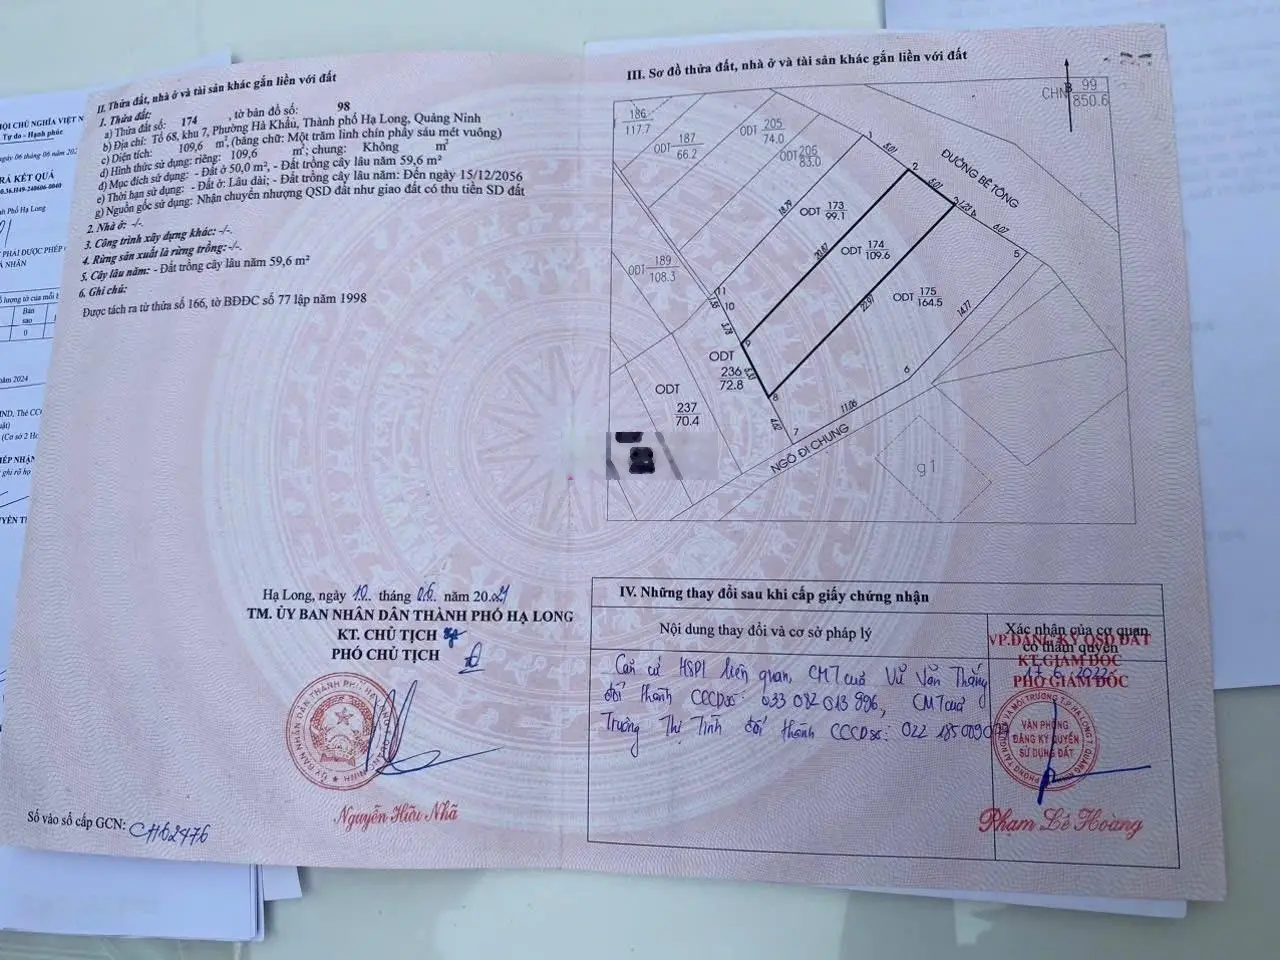 II. Thửa đất, nhà ở và tài sản khác gắn liền với đất
1. Thửa đất:
a) Thửa đất số: 174 , tờ bản đồ số: 98
b) Địa chỉ: Tổ 68, khu 7, Phường Hà Khẩu, Thành phố Hạ Long, Quảng Ninh
c) Diện tích: 109,6 m², (bằng chữ: Một trăm linh chín phẩy sáu mét vuông)
d) Hình thức sử dụng: riêng: 109,6 m²; chung: Không m²
đ) Mục đích sử dụng: - Đất ở 50,0 m², - Đất trồng cây lâu năm 59,6 m²
e) Thời hạn sử dụng: - Đất ở: Lâu dài; - Đất trồng cây lâu năm: Đến ngày 15/12/2056
g) Nguồn gốc sử dụng: Nhận chuyển nhượng QSD đất như giao đất có thu tiền SD đất
2. Nhà ở: -/-.
3. Công trình xây dựng khác: -/-.
4. Rừng sản xuất là rừng trồng: -/-.
5. Cây lâu năm: - Đất trồng cây lâu năm 59,6 m²
6. Ghi chú:
Được tách ra từ thửa số 166, tờ BĐĐC số 77 lập năm 1998
Hạ Long, ngày 10 tháng 06 năm 20
TM. ỦY BAN NHÂN DÂN THÀNH PHỐ HẠ LONG
KT. CHỦ TỊCH
PHÓ CHỦ TỊCH
Nguyễn Hữu Nhã
Số vào sổ cấp GCN: CH62476
III. Sơ đồ thửa đất, nhà ở và tài sản khác gắn liền với đất
B
CHN 99 850.6
186 117.7
ODT 187 66.2
ODT 205 74.0
ODT 206 83.0
ODT 173 99.1
ODT 174 109.6
ODT 175 164.5
ODT 189 108.3
ODT 236 72.8
ODT 237 70.4
ĐƯỜNG BÊ TÔNG
NGÕ ĐI CHUNG
g1
1
2
5
6
7
8
10
11
5.01
5.01
6.07
18.79
20.87
22.97
14.77
11.06
3.78
4.62
IV. Những thay đổi sau khi cấp giấy chứng nhận
Nội dung thay đổi và cơ sở pháp lý
Xác nhận của cơ quan có thẩm quyền
Căn cứ HSPL liên quan, CMT của Vũ Văn Thắng
đổi thành CCCD số: 033 082 013 996, CMT của
Trương Thị Tình đổi thành CCCD số:
VP.ĐĂNG KÝ QSD ĐẤT
KT.GIÁM ĐỐC
PHÓ GIÁM ĐỐC
VĂN PHÒNG
ĐĂNG KÝ QUYỀN
SỬ DỤNG ĐẤT
Phạm Lê Hoàng